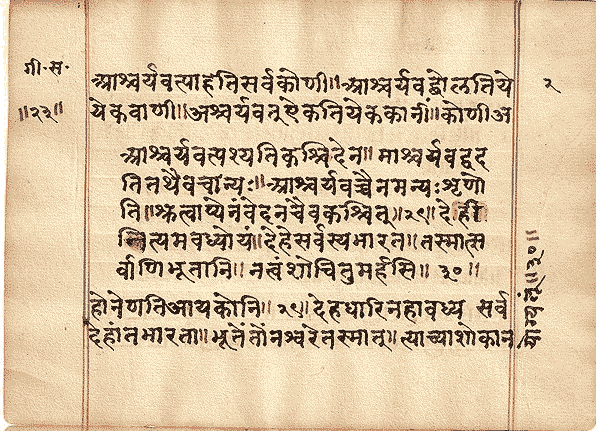 गी॰ स॰
॥२३॥
२
आश्चर्यवत्पाहतिसर्वकोणी॥आश्चर्यवद्बोलतिये
येकवाणी॥अश्चर्यवत्ऐकतियेककानीं॥कोणीअ
आश्चर्यवत्पश्यतिकश्चिदेन॥माश्चर्यवद्वद
तितथैवचान्यः॥आश्चर्यवच्चैनमन्यःशृणो
ति॥श्रुत्वाप्येनंवेदनचैवकश्चित्॥२९॥देही
नित्यमवध्योयं॥देहेसर्वस्यभारत॥तस्मात्स
र्वाणिभूतानि॥नत्वंशोचितुमर्हसि॥३०॥
होनेणतिआयकोनि॥२९॥देहधारिनहावध्य सर्व
देहांतभारता॥भूतेंतोंनश्वरेतस्मात्॥त्याच्याशोकान
॥३०॥